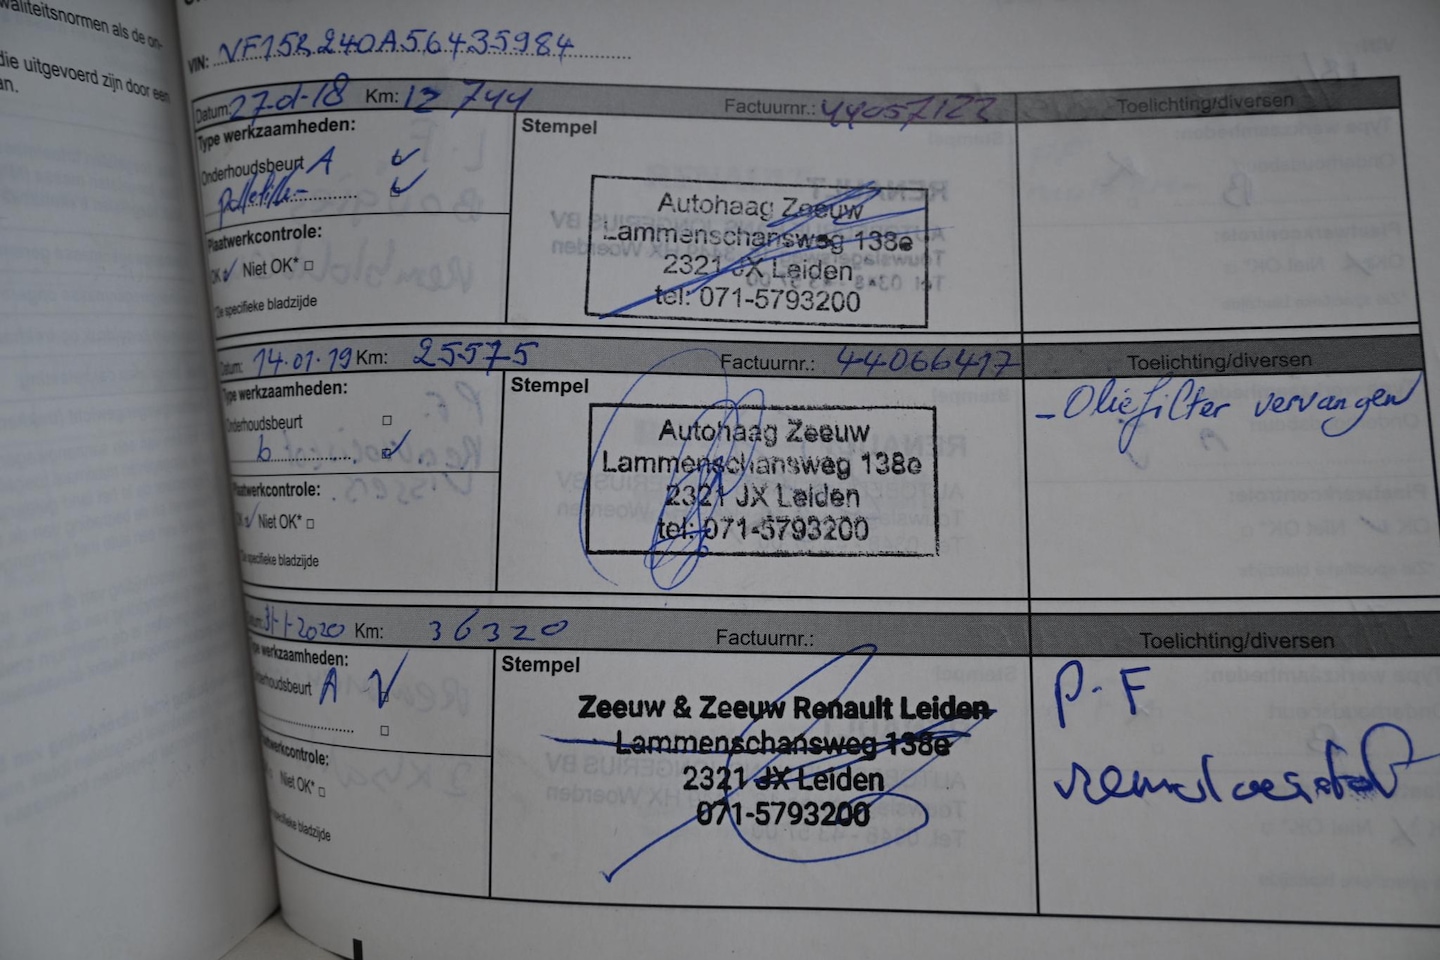 waliteitsnormen als de on-
die uitgevoerd zijn door een
an.
VIN: VF15R240A56435984
Datum: 27-01-18 Km: 12 744 Factuurnr.: 44057123 Toelichting/diversen
Type werkzaamheden:
Stempel
Onderhoudsbeurt A
pollefilter
Plaatwerkcontrole:
OK Niet OK*
*De specifieke bladzijde
Autohaag Zeeuw
Lammenschansweg 138e
2321 JX Leiden
tel: 071-5793200
Datum: 14.01.19 Km: 25575 Factuurnr.: 44066417 Toelichting/diversen
Type werkzaamheden:
Stempel
Onderhoudsbeurt
b
Plaatwerkcontrole:
OK Niet OK*
*De specifieke bladzijde
Autohaag Zeeuw
Lammenschansweg 138e
2321 JX Leiden
tel: 071-5793200
- Oliefilter vervangen
Datum: 31-1-2020 Km: 36320 Factuurnr.: Toelichting/diversen
Type werkzaamheden:
Stempel
Onderhoudsbeurt A
Plaatwerkcontrole:
Niet OK*
specifieke bladzijde
Zeeuw & Zeeuw Renault Leiden
Lammenschansweg 138e
2321 JX Leiden
071-5793200
P-F
remvloeistof